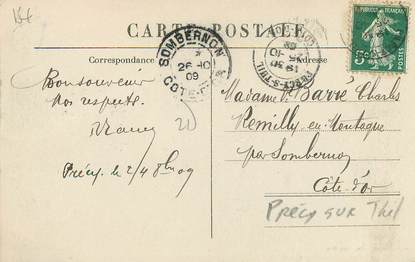 CARTE POSTALE
Correspondance
Adresse
SOMBERNON
26-10
09
COTE-D'OR
PRÉCY-S-THIL
5c
Bon souvenir
Nos respects.
Précy le 24 8bre 09
Madame Barré Charles
Remilly-en-Montagne
par Sombernon
Côte-d'or
Précy sur Thil
20